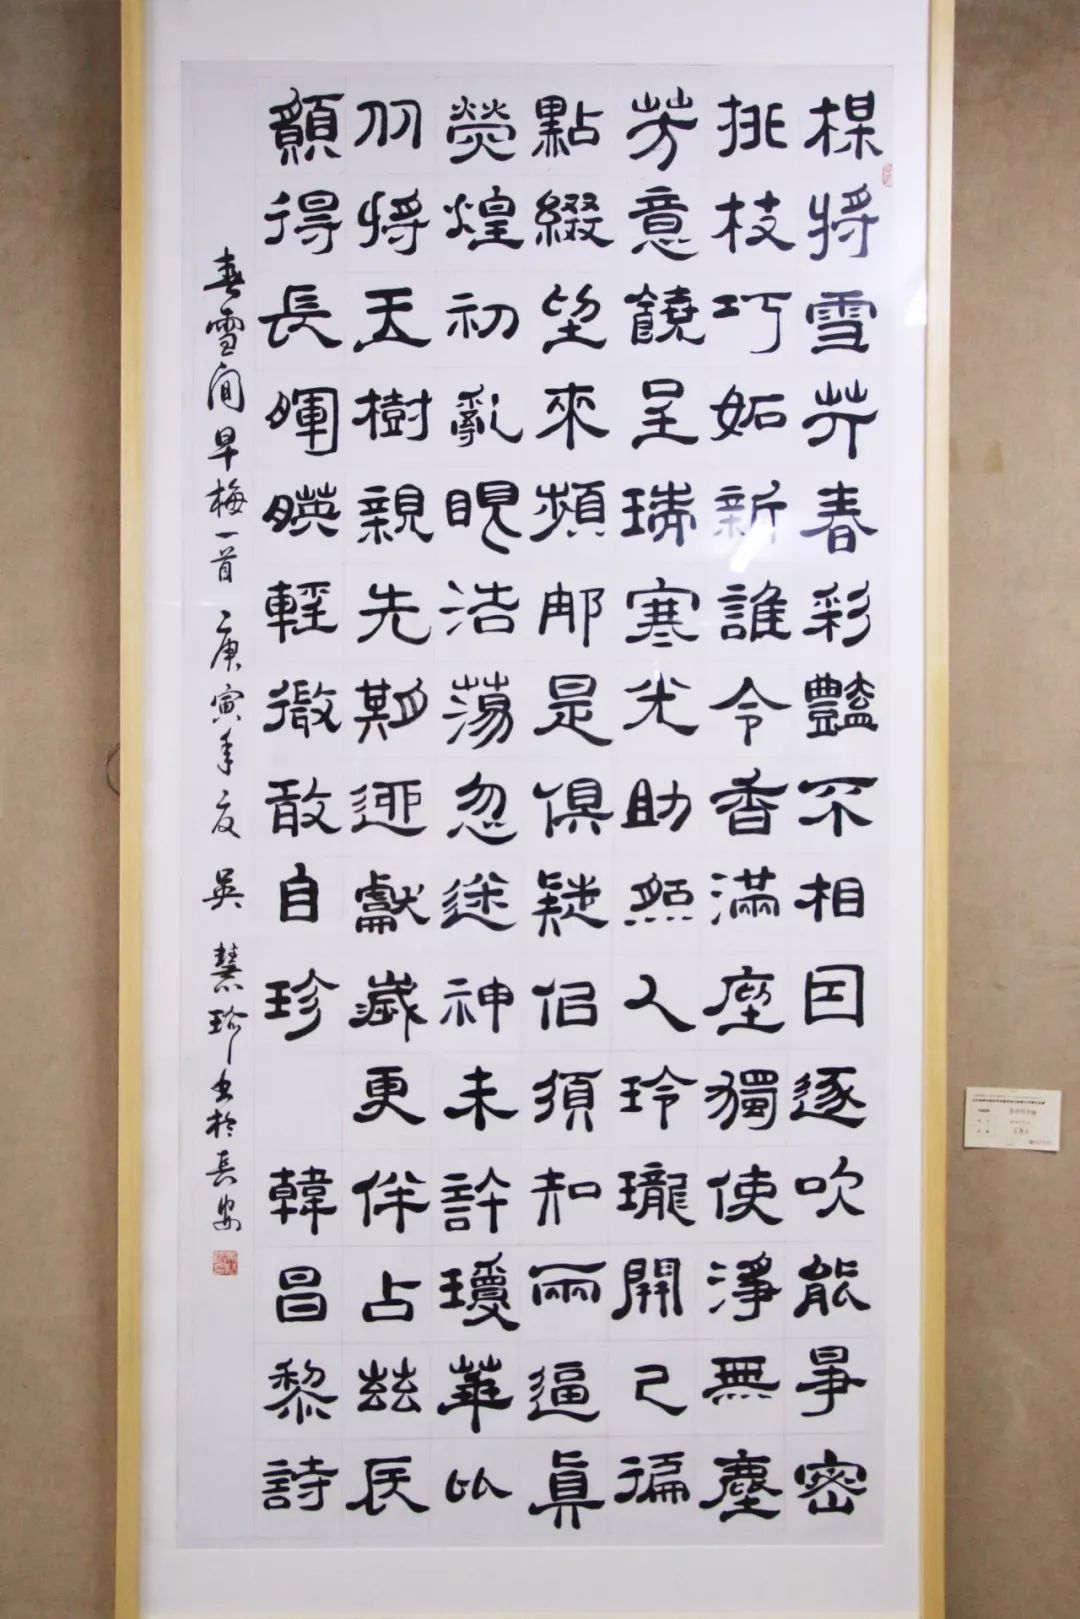 楳將雪共春彩豔不相因逐吹能爭密
排枝巧妬新誰令香滿座獨使淨無塵
芳意饒呈瑞寒光助照人玲瓏開已徧
點綴坐來頻那是俱疑佀須知兩逼真
熒煌初亂眼浩蕩忽迷神未許瓊華比
从將玉樹親先期迎獻歲更伴占茲辰
願得長暉暎輕微敢自珍 韓昌黎詩
春雪间早梅一首 庚寅年夏 吴慧珍书於長安